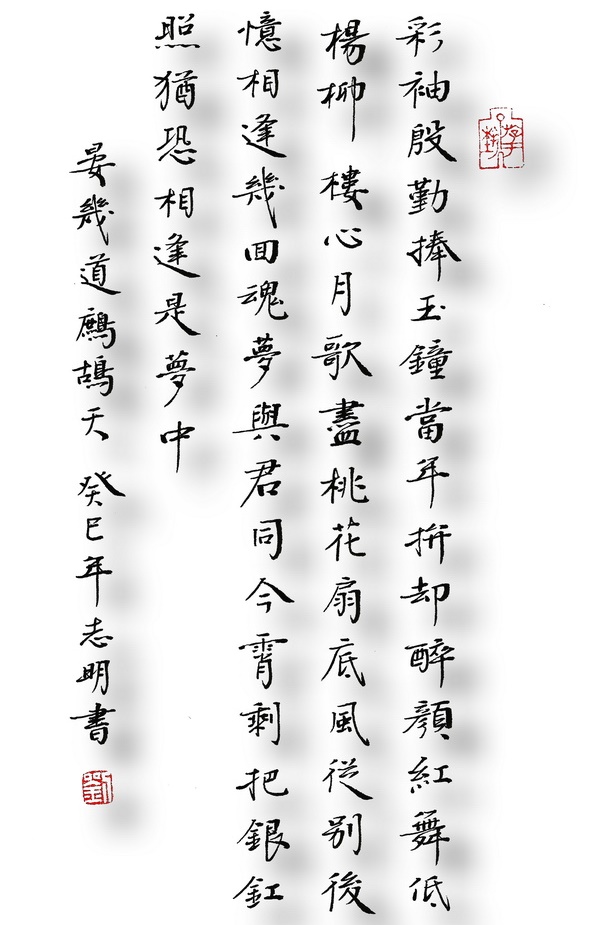 彩袖殷勤捧玉鐘當年拚却醉顏紅舞低
楊柳樓心月歌盡桃花扇底風從別後
憶相逢幾回魂夢與君同今霄剩把銀釭
照猶恐相逢是夢中
晏幾道鷓鴣天 癸巳年志明書
劉